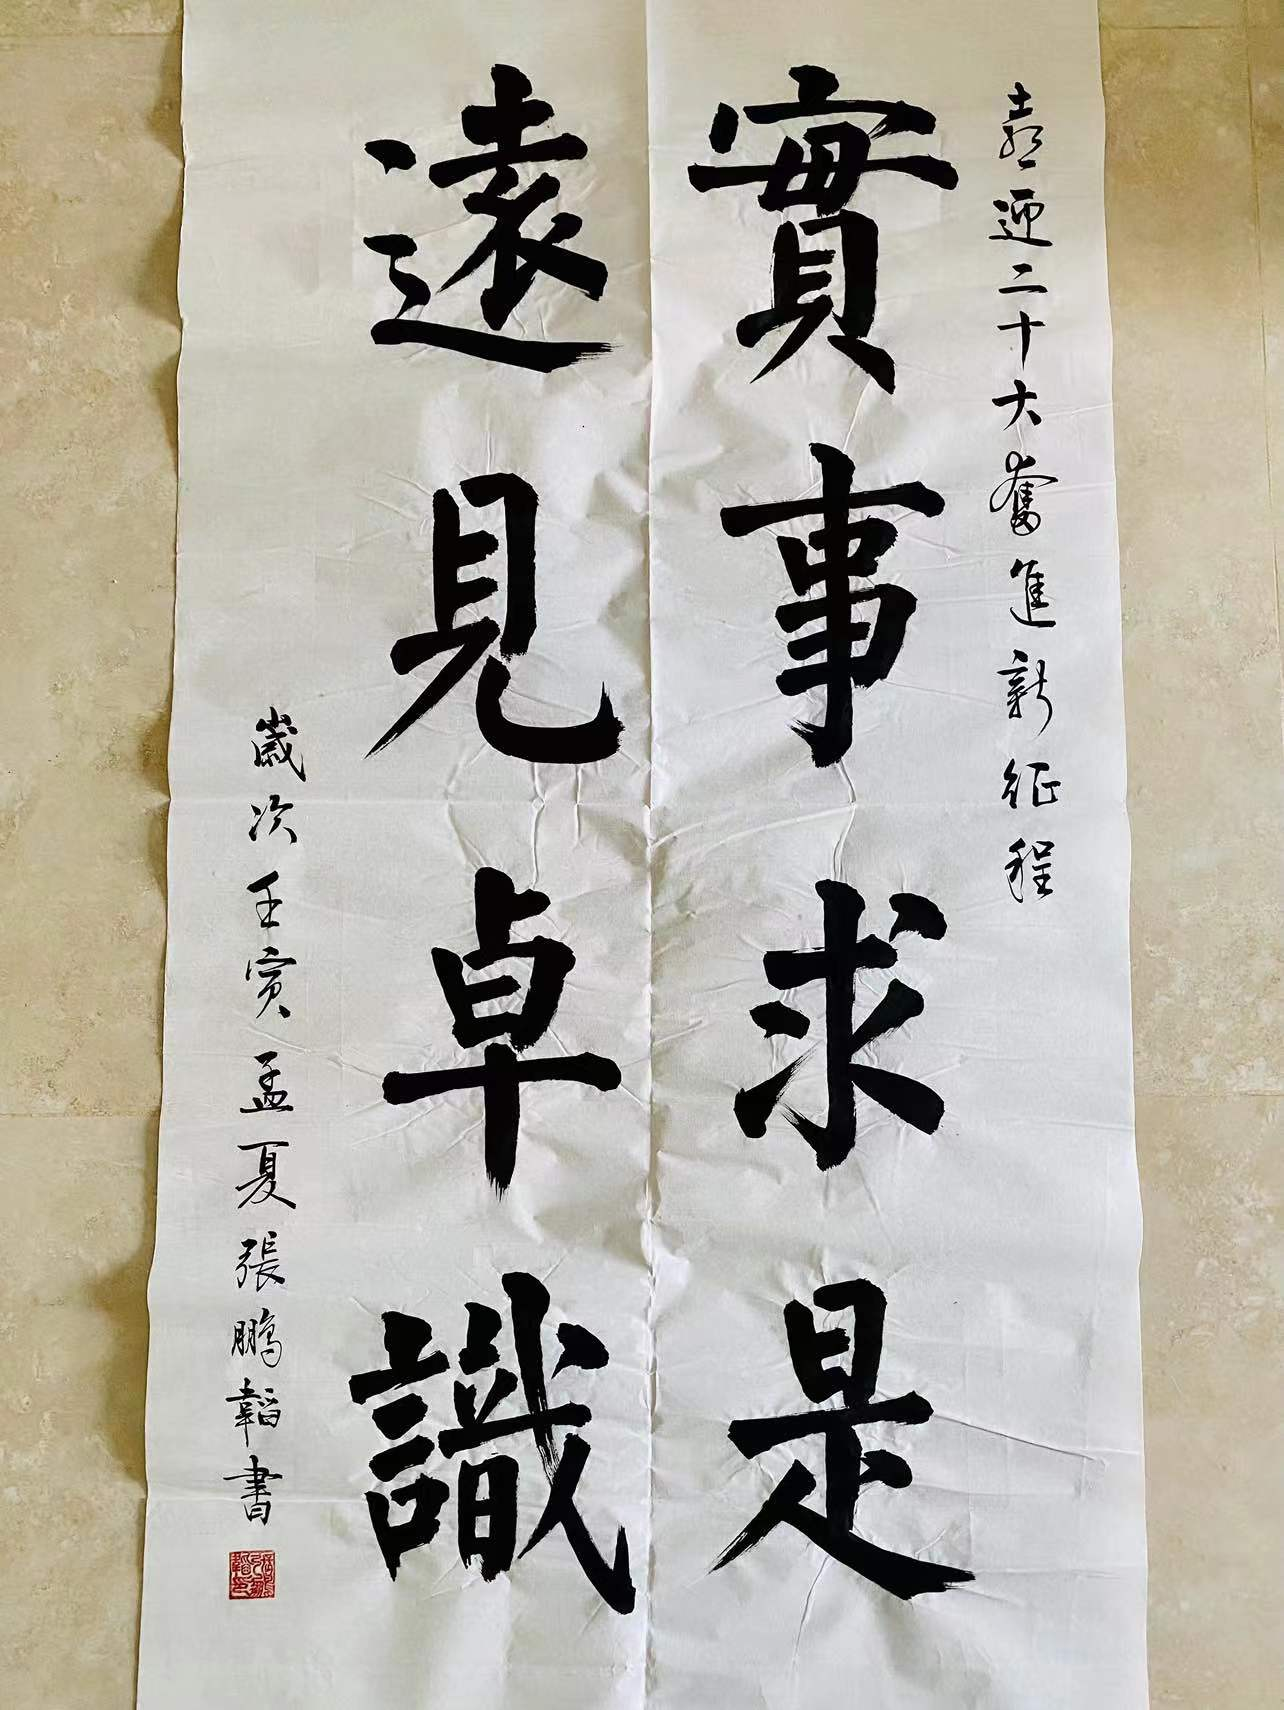 喜迎二十大奮進新征程
實事求是
遠見卓識
歲次壬寅孟夏張鵬韜書